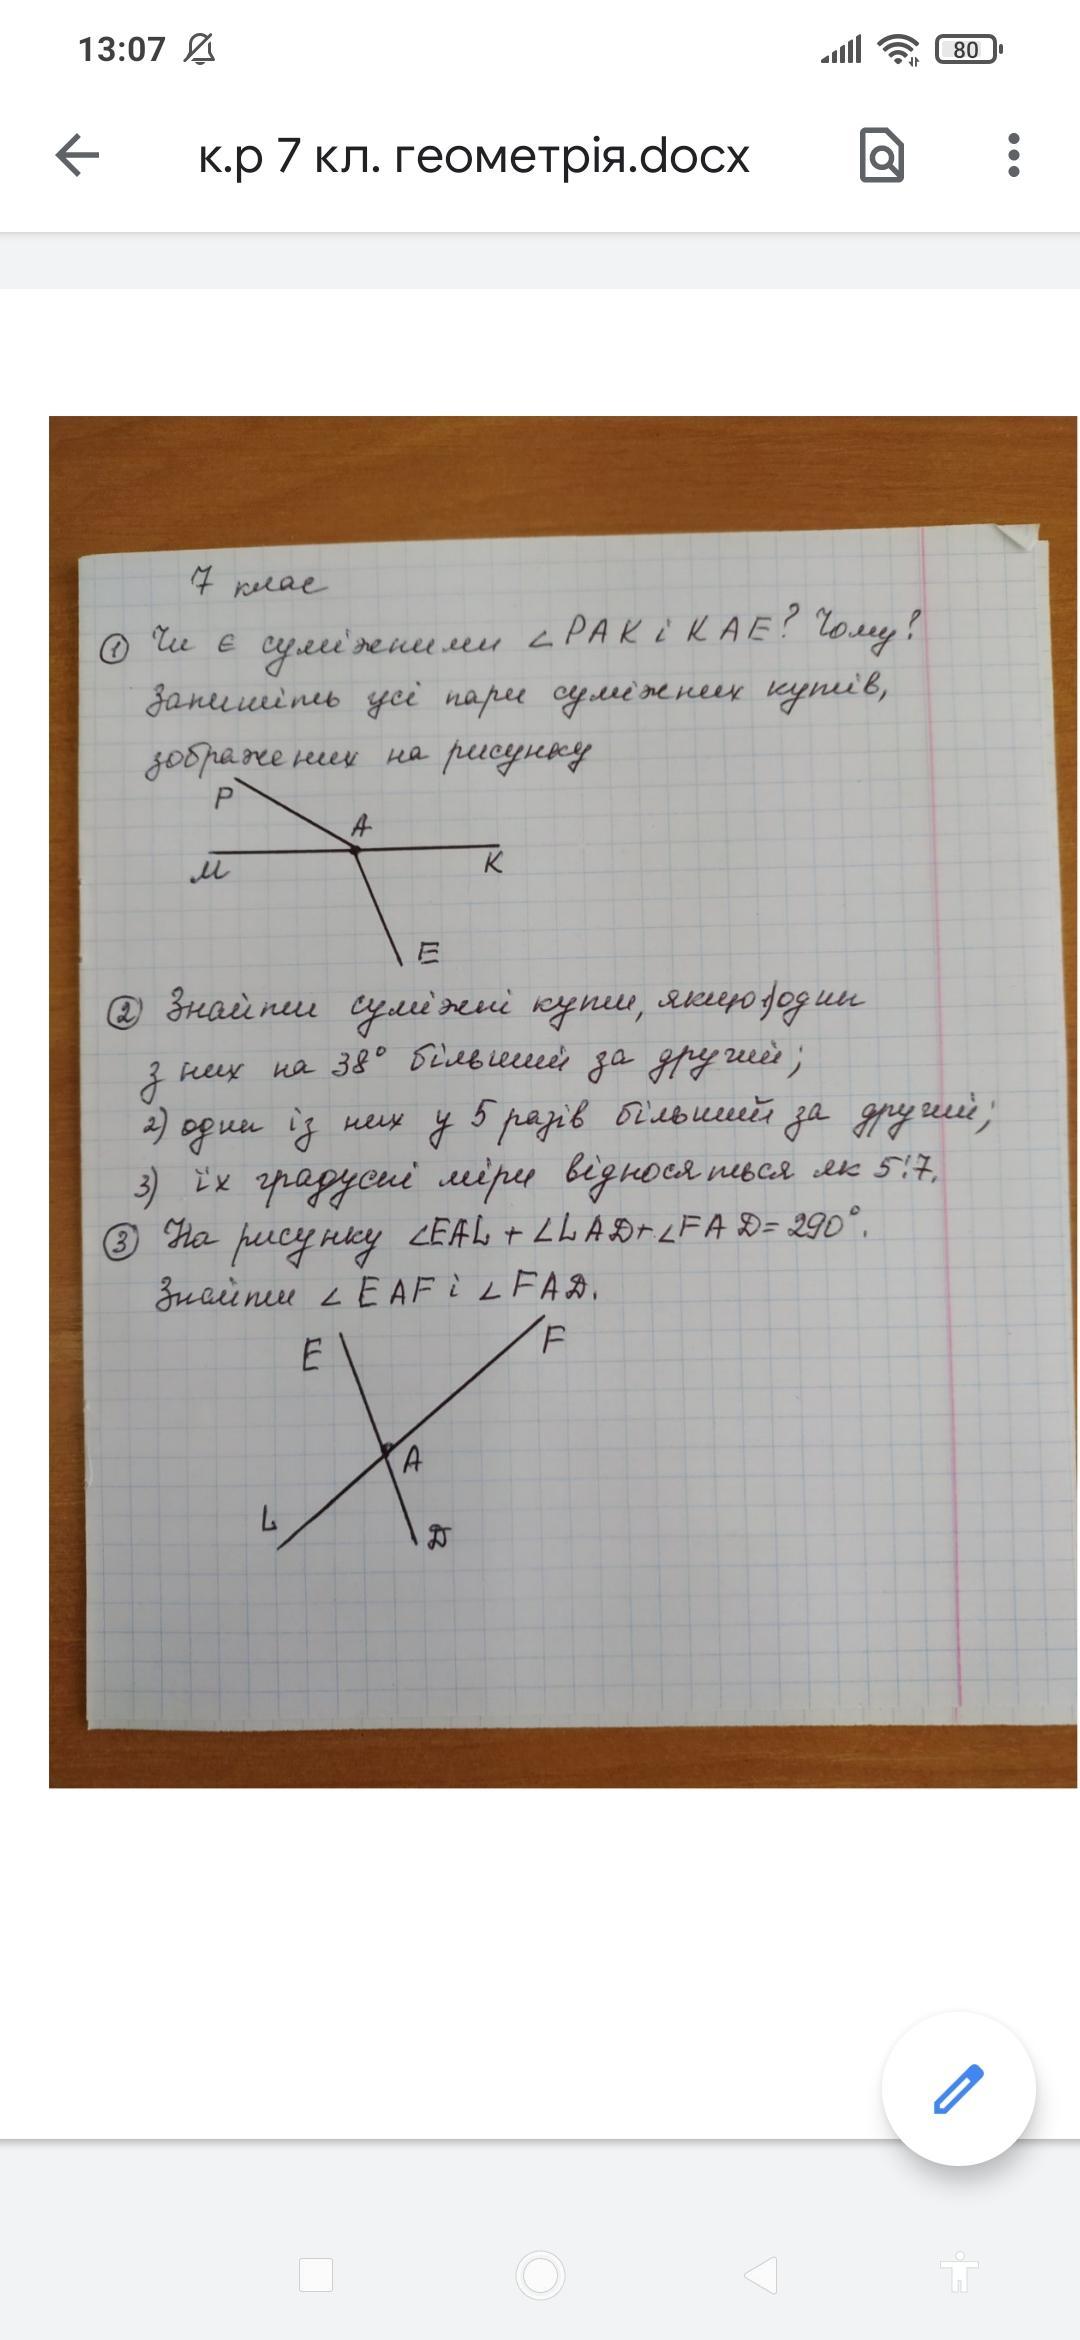 13:07
80
к.р 7 кл. геометрія.docx
7 клас
① Чи є суміжними ∠PAK і KAE? Чому?
Запишіть усі пари суміжних кутів,
зображених на рисунку
P
A
M
K
E
② Знайти суміжні кути, якщо 1) один
з них на 38° більший за другий;
2) один із них у 5 разів більший за другий;
3) їх градусні міри відносяться як 5:7.
③ На рисунку ∠EAL + ∠LAD + ∠FAD = 290°.
Знайти ∠EAF і ∠FAD.
E
F
A
L
D